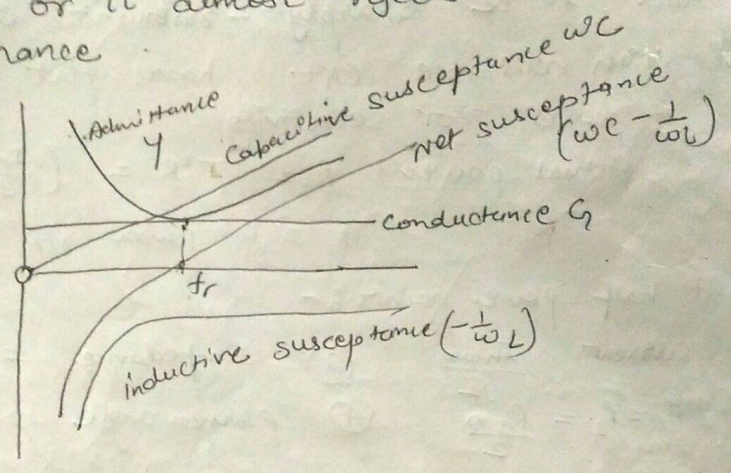 or it almost
nance.
Admittance
Y
Capacitive susceptance ωC
Net susceptance
(ωC - 1/ωL)
Conductance G
fr
inductive susceptance (-1/ωL)